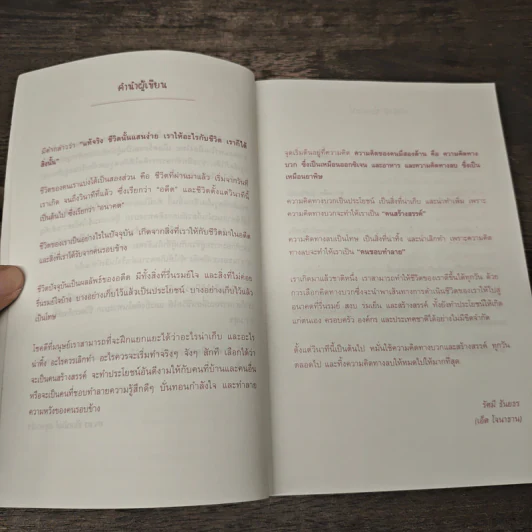 คำนำผู้เขียน
มีคำกล่าวว่า "แท้จริง ชีวิตนั้นแสนง่าย เราให้อะไรกับชีวิต เราก็ได้
สิ่งนั้น"
ชีวิตของคนเราแบ่งได้เป็นสองส่วน คือ ชีวิตที่ผ่านมาแล้ว เริ่มจากวันที่
เราเกิด จนถึงวินาทีที่แล้ว ซึ่งเรียกว่า "อดีต" และชีวิตตั้งแต่วินาทีนี้
เป็นต้นไป ซึ่งเรียกว่า "อนาคต"
ชีวิตของเราเป็นอย่างไรในปัจจุบัน เกิดจากสิ่งที่เราให้กับชีวิตมาในอดีต
และสิ่งที่เราได้รับจากคนรอบข้าง
ชีวิตปัจจุบันเป็นผลลัพธ์ของอดีต มีทั้งสิ่งที่รื่นรมย์ใจ และสิ่งที่ไม่ค่อย
รื่นรมย์ใจบ้าง บางอย่างเก็บไว้แล้วเป็นประโยชน์ บางอย่างเก็บไว้แล้ว
เป็นโทษ
โชคดีที่มนุษย์เราสามารถที่จะฝึกแยกแยะได้ว่าอะไรน่าเก็บ และอะไร
น่าทิ้ง อะไรควรเลิกทำ อะไรควรจะเริ่มทำจริงๆ จังๆ สักที เลือกได้ว่า
จะเป็นคนสร้างสรรค์ จะทำประโยชน์อันดีงามให้กับคนที่บ้านและคนอื่น
หรือจะเป็นคนที่ชอบทำลายความรู้สึกดีๆ บั่นทอนกำลังใจ และทำลาย
ความหวังของคนรอบข้าง
จุดเริ่มต้นอยู่ที่ความคิด ความคิดของคนมีสองด้าน คือ ความคิดทาง
บวก ซึ่งเป็นเหมือนออกซิเจน และอาหาร และความคิดทางลบ ซึ่งเป็น
เหมือนยาพิษ
ความคิดทางบวกเป็นประโยชน์ เป็นสิ่งที่น่าเก็บ และน่าทำเพิ่ม เพราะ
ความคิดทางบวกจะทำให้เราเป็น "คนสร้างสรรค์"
ความคิดทางลบเป็นโทษ เป็นสิ่งที่น่าทิ้ง และน่าเลิกทำ เพราะความคิด
ทางลบจะทำให้เราเป็น "คนชอบทำลาย"
เราเกิดมาแล้วชาติหนึ่ง เราสามารถทำให้ชีวิตของเราดีขึ้นได้ทุกวัน ด้วย
การเลือกความคิดทางบวก ซึ่งจะนำพาเส้นทางการดำเนินชีวิตของเราให้ไปสู่
อนาคตที่รื่นรมย์ สงบ ร่มเย็น และสร้างสรรค์ ทั้งยังทำประโยชน์ให้เกิด
แก่ตนเอง ครอบครัว องค์กร และประเทศชาติได้อย่างไม่มีขีดจำกัด
ตั้งแต่วินาทีนี้เป็นต้นไป หมั่นใช้ความคิดทางบวกและสร้างสรรค์ ทุกวัน
ตลอดไป และทิ้งความคิดทางลบให้หมดไปให้มากที่สุด
รัศมี ธันยธร
(เอ็ด ใจนาธาน)